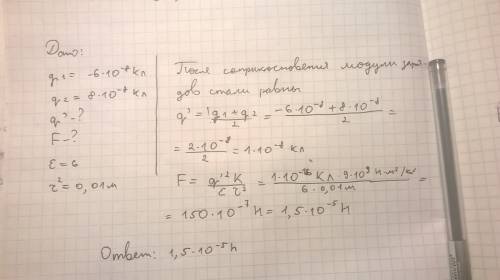 Дано:
q1 = -6·10⁻⁸ Кл
q2 = 8·10⁻⁸ Кл
q' - ?
F - ?
ε = 6
r² = 0,01 м
После соприкосновения модули заря-
дов стали равны
q' = |q1 + q2 / 2 = -6·10⁻⁸ + 8·10⁻⁸ / 2 =
= 2·10⁻⁸ / 2 = 1·10⁻⁸ кл
F = q'² K / ε r² = 1·10⁻¹⁶ Кл · 9·10⁹ Н·м²/кл² / 6·0,01м =
= 150·10⁻⁷ Н = 1,5·10⁻⁵ Н
Ответ: 1,5·10⁻⁵ Н